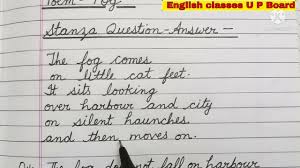 English classes U P Board
Poem - Fog
Stanza Question-Answer -
The fog comes
on little cat feet.
It sits looking
over harbour and city
on silent haunches
and then moves on.
The fog does not fall on harbour